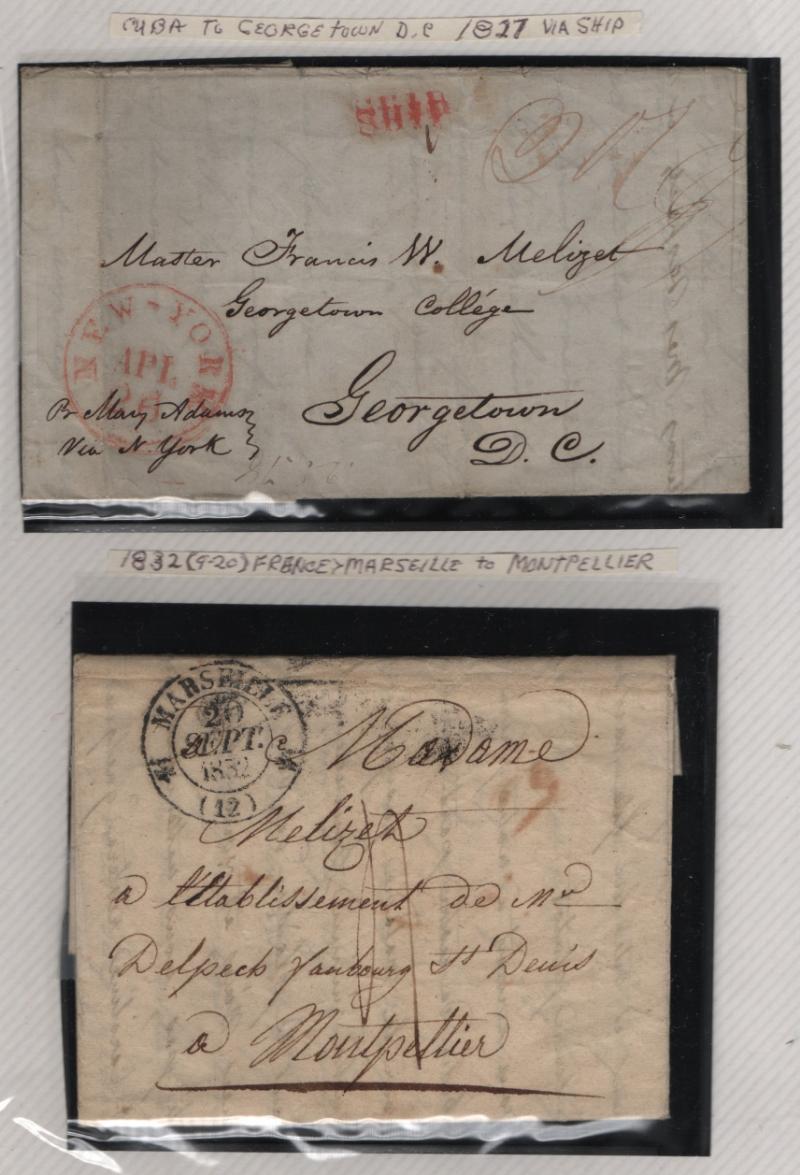 CUBA TO GEORGETOWN D.C 1827 VIA SHIP
SHIP
Master Francis W. Melizet
Georgetown Collége
NEW-YORK
APL
Georgetown
Pr Mary Adams
Via N. York
D. C.
1832 (9-20) FRANCE>MARSEILLE to MONTPELLIER
MARSEILLE
20
SEPT.
1832
(12)
A Madame
Melizet
a l'Etablissement de Mr
Delpech faubourg St Denis
a Montpellier